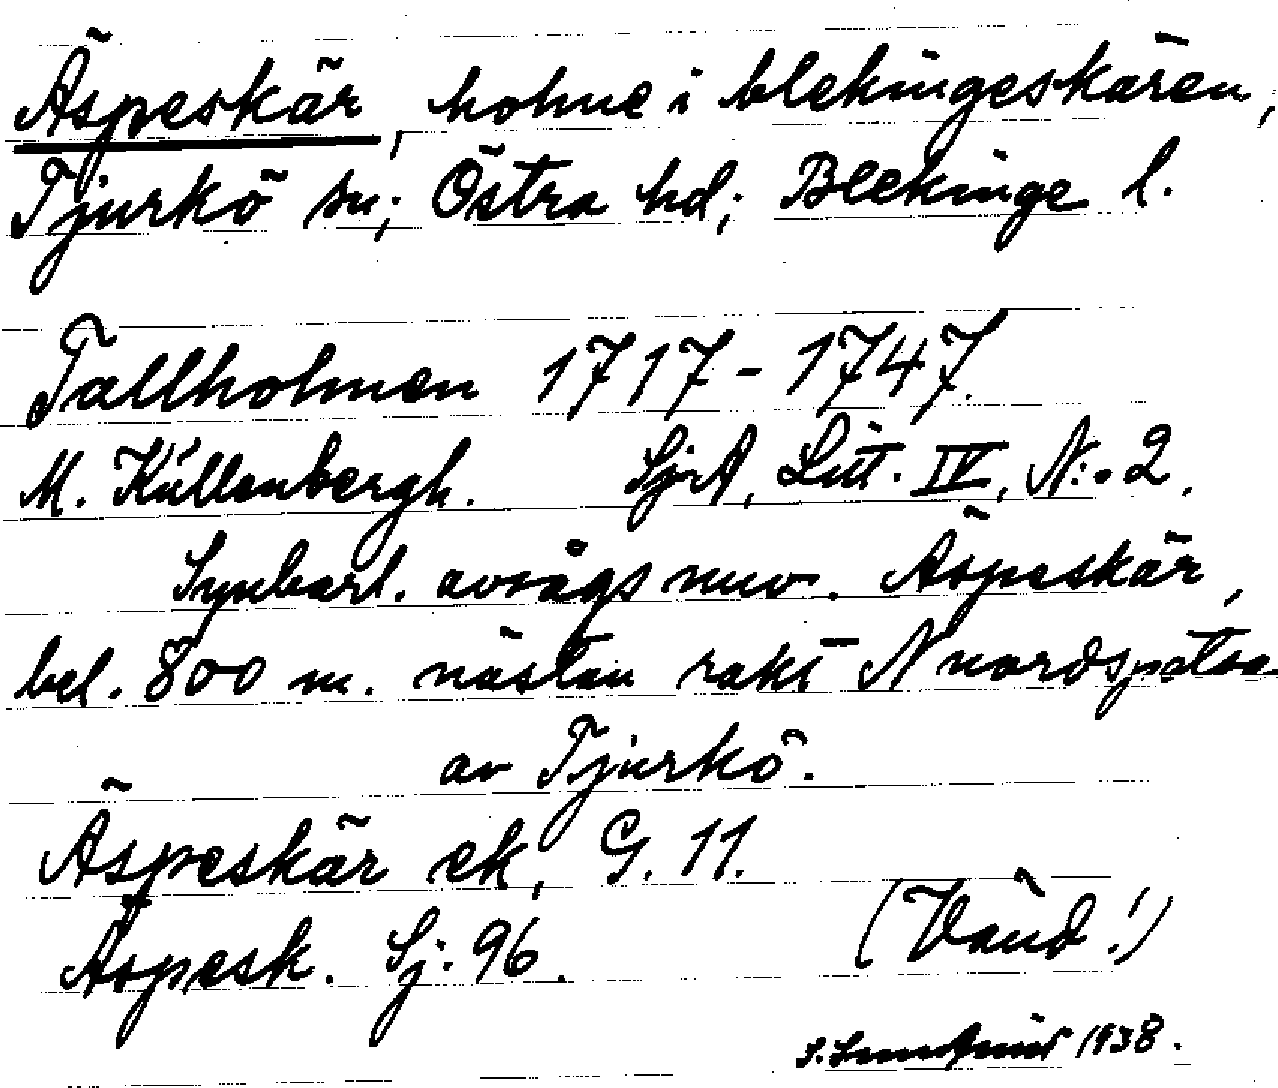 Äspeskär, holme i blekingeskären,
Tjurkö sn; Östra hd; Blekinge l.
Tallholmen 1717-1747.
M. Küllenbergh. SjrA, Litt. IV, N:o 2.
Synbarl. avsågs nuv. Äspeskär,
bel. 800 m. nästan rakt N nordspetsen
av Tjurkö.
Äspeskär ek, G. 11.
Äspesk. Sj: 96.
(Vänd!)
1938.